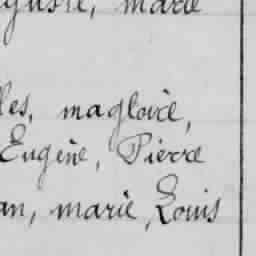 guste, marie
les, magloire,
Eugène, Pierre
an, marie, Louis